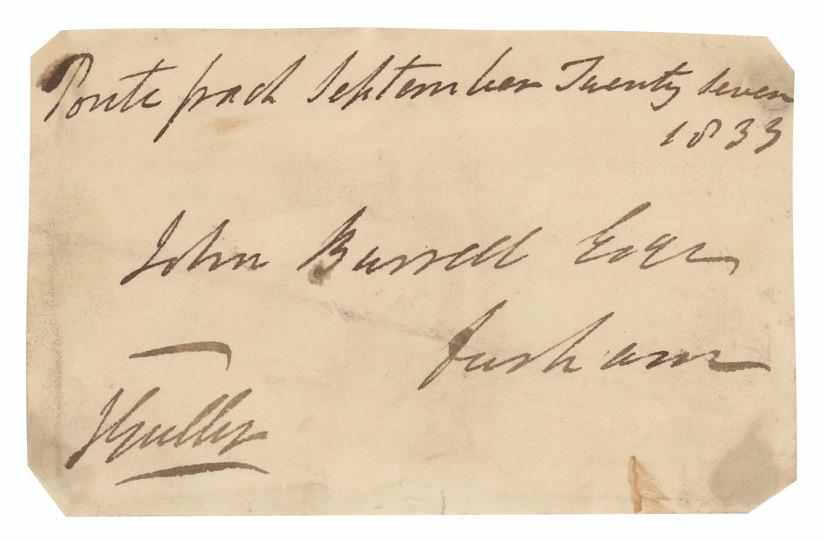 Pontefract September Twenty seven
1833
John Burrell Esqr
Durham
JGully